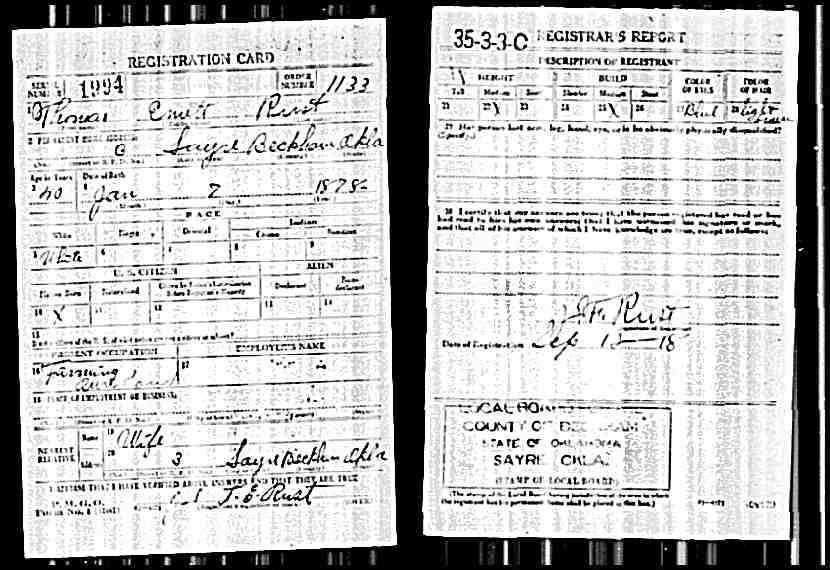 REGISTRATION CARD
SERIAL NUMBER 1994 ORDER NUMBER 1133
1 Thomas Emett Rust
2 PERMANENT HOME ADDRESS
Sayre Beckham Okla
Age in Years Date of Birth
3 40 4 Jan 2 1878
RACE
White Negro Oriental Indian
Citizen Noncitizen
5 White 6 7 8 9
U. S. CITIZEN ALIEN
Native Born Naturalized Citizen by Father's Naturalization Before Registrant's Majority Declarant Non-declarant
10 X 11 12 13 14
15
PRESENT OCCUPATION EMPLOYER'S NAME
16 Farming 17
18 PLACE OF EMPLOYMENT OR BUSINESS
NEAREST RELATIVE
Name 19 Wife
Address 20 3 Sayre Beckham Okla
I AFFIRM THAT I HAVE VERIFIED ABOVE ANSWERS AND THAT THEY ARE TRUE
P. M. G. O.
Form No. 1 (Red) T. E. Rust (OVER)
35-3-3-C REGISTRAR'S REPORT
DESCRIPTION OF REGISTRANT
HEIGHT BUILD COLOR OF EYES COLOR OF HAIR
Tall Medium Short Slender Medium Stout
21 22 \ 23 24 25 \ 26 27 Blue 28 light
29 Has person lost arm, leg, hand, eye, or is he obviously physically disqualified?
(Specify.)
30 I certify that my answers are true; that the person registered has read or has
had read to him his own answers; that I have witnessed his signature or mark,
and that all of his answers of which I have knowledge are true, except as follows:
Rust
Date of Registration Sep 12-18
LOCAL BOARD
COUNTY OF BECKHAM
STATE OF OKLAHOMA
SAYRE, OKLA.
(STAMP OF LOCAL BOARD)
(The stamp of the Local Board having jurisdiction of the area in which
the registrant has his permanent home shall be placed in this box.)